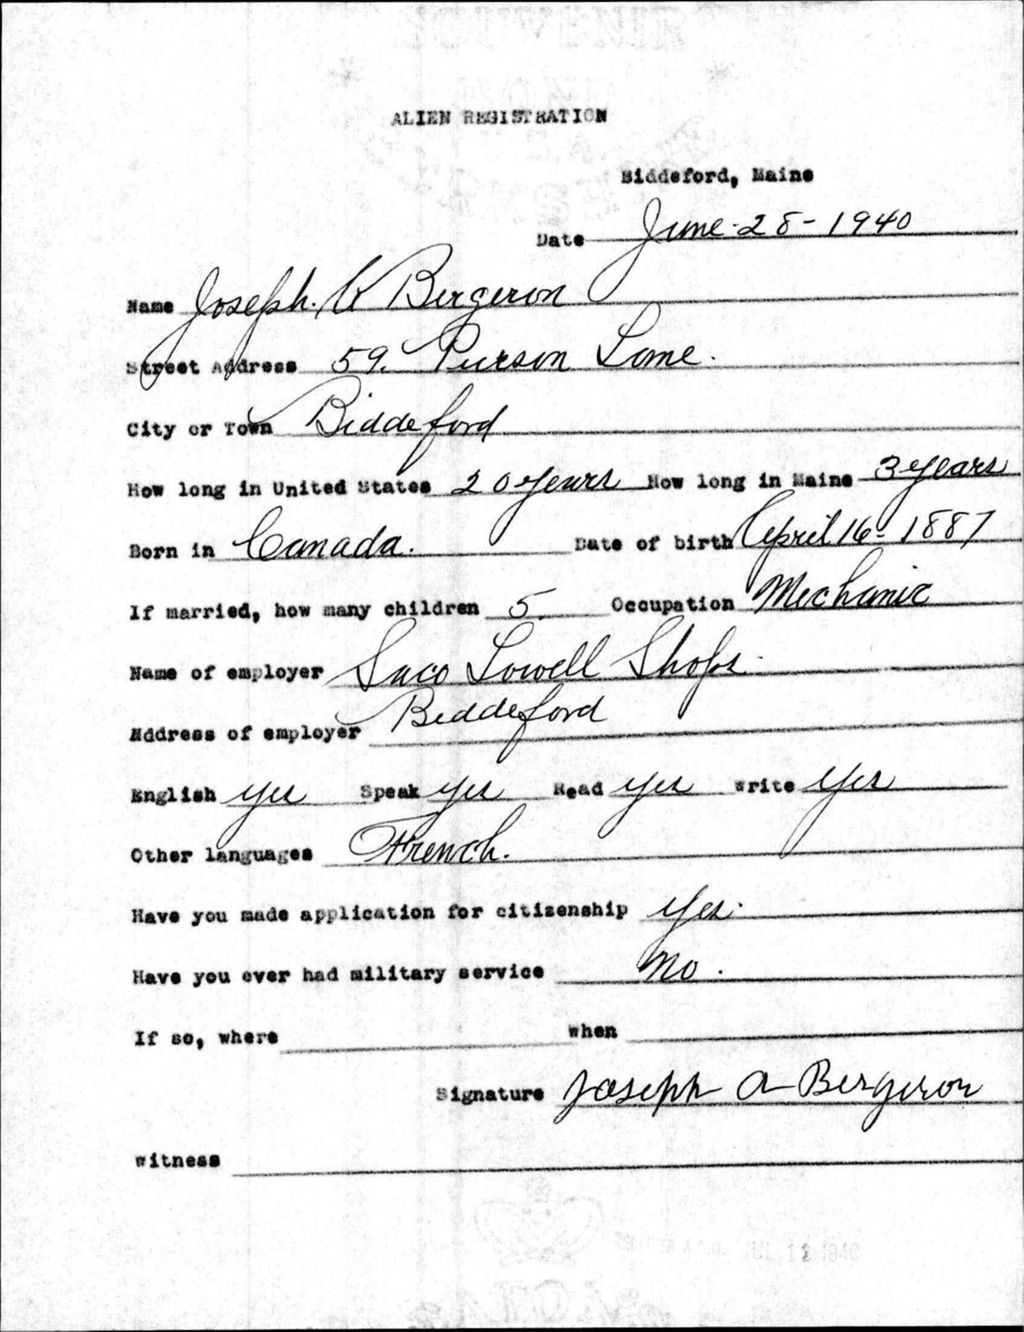 ALIEN REGISTRATION
Biddeford, Maine
Date June-28-1940
Name Joseph. A Bergeron
Street Address 59. Pierson Lane.
City or Town Biddeford
How long in United States 20 years How long in Maine 3 years
Born in Canada. Date of birth April 16-1887
If married, how many children 5. Occupation Mechanic
Name of employer Saco Lowell Shops.
Address of employer Biddeford
English yes Speak yes Read yes Write yes
Other languages French.
Have you made application for citizenship yes.
Have you ever had military service no.
If so, where when
Signature Joseph A Bergeron
Witness
JUL 12 1940